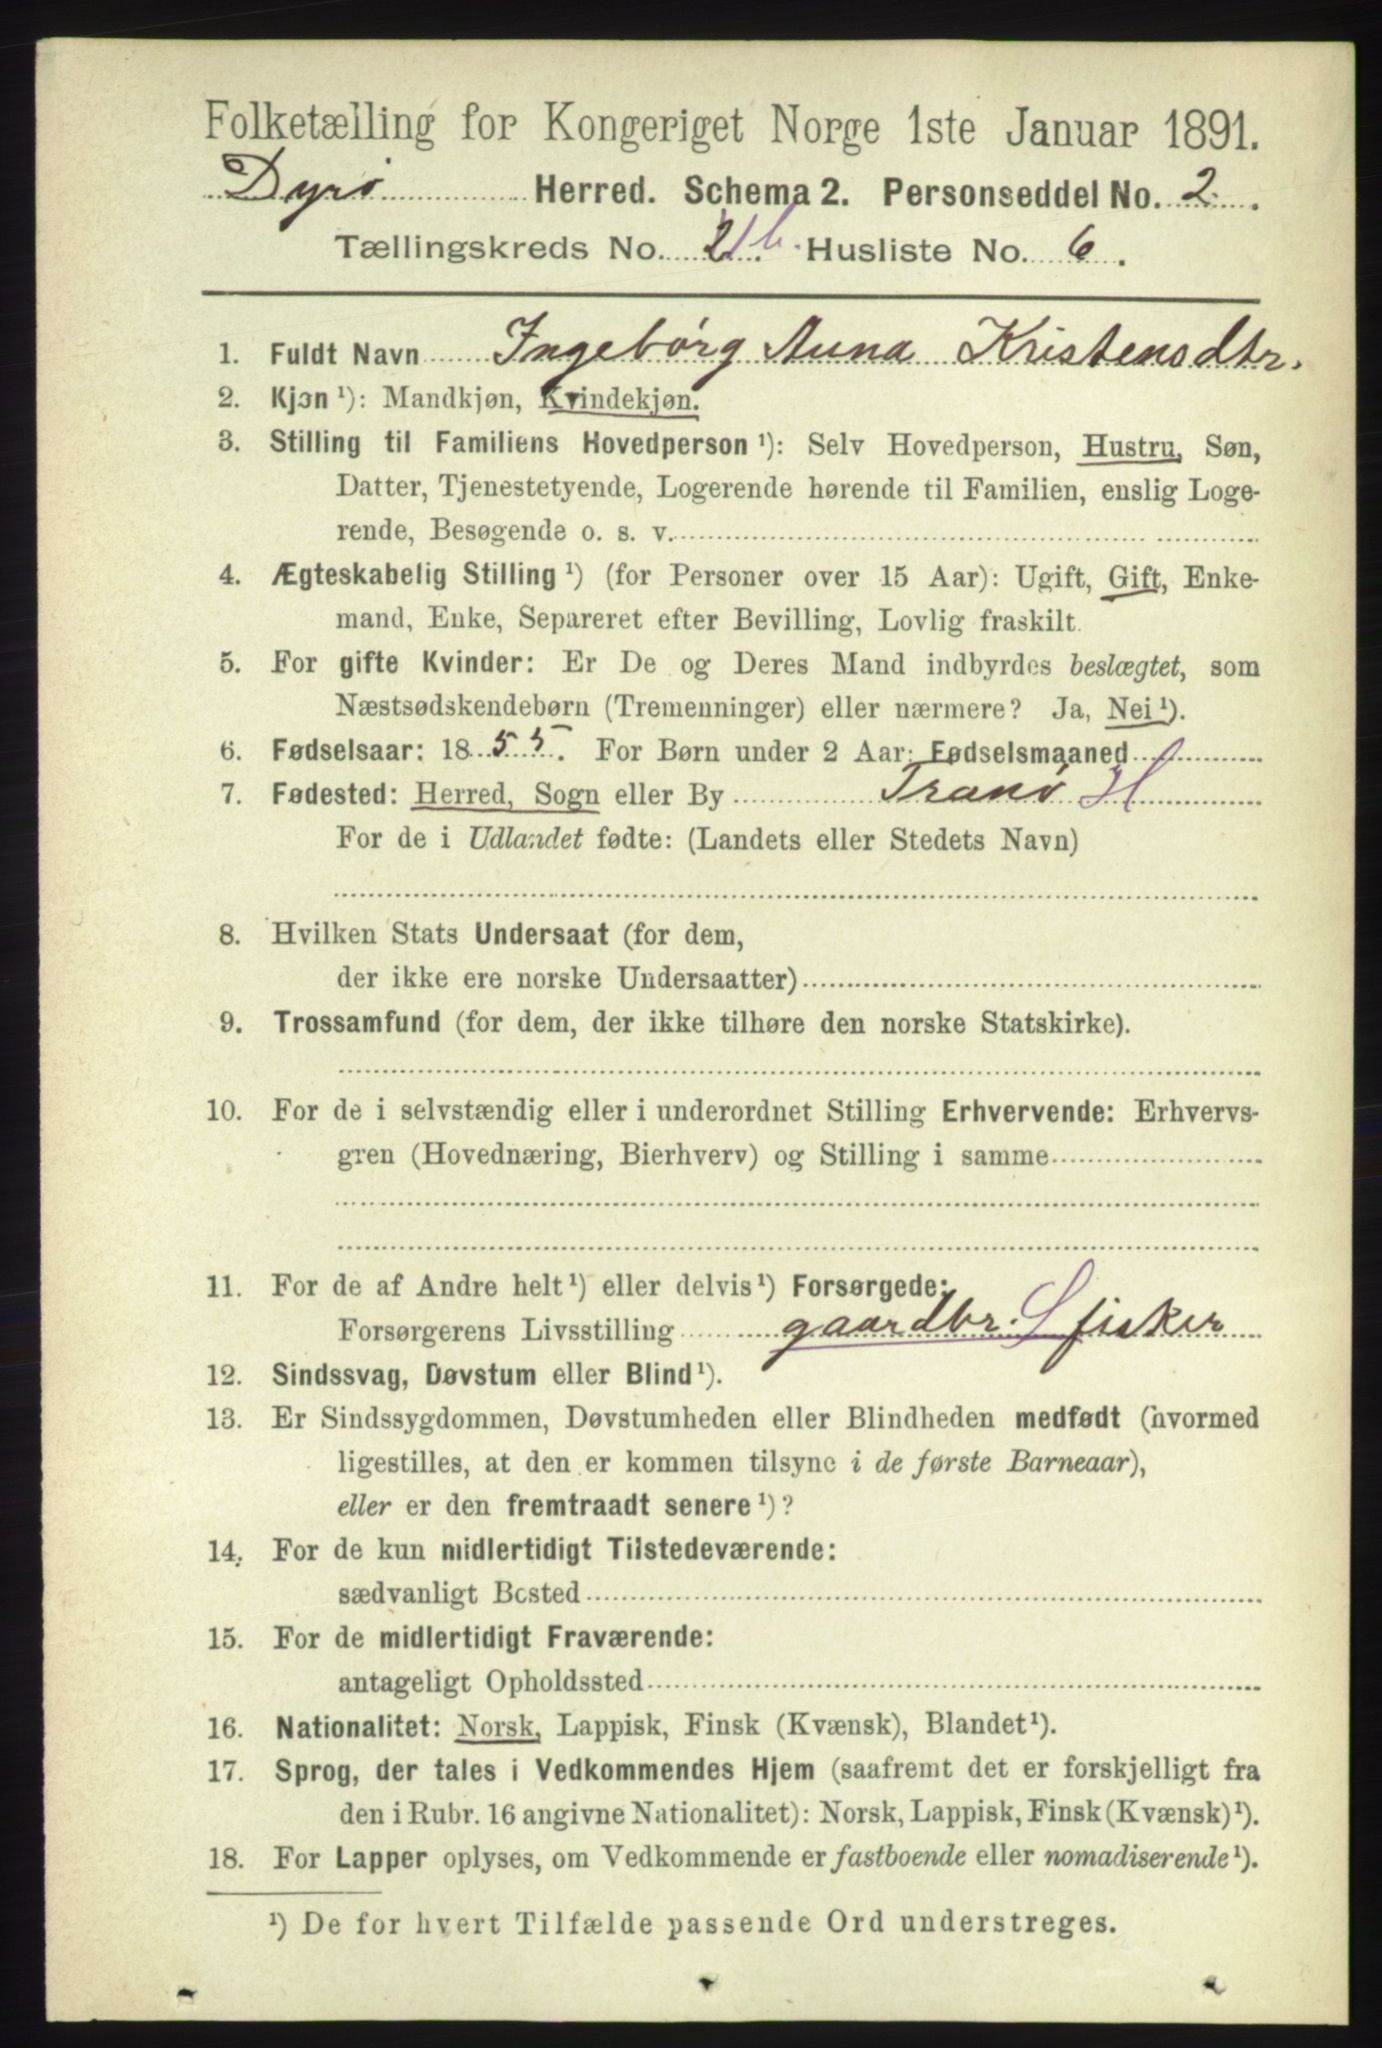 Folketælling for Kongeriget Norge 1ste Januar 1891.
Dyrø Herred. Schema 2. Personseddel No. 2.
Tællingskreds No. 21b. Husliste No. 6.
1. Fuldt Navn Ingebørg Anna Kristensdtr.
2. Kjøn ¹): Mandkjøn, Kvindekjøn.
3. Stilling til Familiens Hovedperson ¹): Selv Hovedperson, Hustru, Søn,
Datter, Tjenestetyende, Logerende hørende til Familien, enslig Loge-
rende, Besøgende o. s. v.
4. Ægteskabelig Stilling ¹) (for Personer over 15 Aar): Ugift, Gift, Enke-
mand, Enke, Separeret efter Bevilling, Lovlig fraskilt.
5. For gifte Kvinder: Er De og Deres Mand indbyrdes beslægtet, som
Næstsødskendebørn (Tremenninger) eller nærmere? Ja, Nei ¹).
6. Fødselsaar: 1855. For Børn under 2 Aar: Fødselsmaaned
7. Fødested: Herred, Sogn eller By Tranø H
For de i Udlandet fødte: (Landets eller Stedets Navn)
8. Hvilken Stats Undersaat (for dem,
der ikke ere norske Undersaatter)
9. Trossamfund (for dem, der ikke tilhøre den norske Statskirke).
10. For de i selvstændig eller i underordnet Stilling Erhvervende: Erhvervs-
gren (Hovednæring, Bierhverv) og Stilling i samme
11. For de af Andre helt ¹) eller delvis ¹) Forsørgede:
Forsørgerens Livsstilling gaardbr. S fisker
12. Sindssvag, Døvstum eller Blind ¹).
13. Er Sindssygdommen, Døvstumheden eller Blindheden medfødt (hvormed
ligestilles, at den er kommen tilsyne i de første Barneaar),
eller er den fremtraadt senere ¹)?
14. For de kun midlertidigt Tilstedeværende:
sædvanligt Bosted
15. For de midlertidigt Fraværende:
antageligt Opholdssted
16. Nationalitet: Norsk, Lappisk, Finsk (Kvænsk), Blandet ¹).
17. Sprog, der tales i Vedkommendes Hjem (saafremt det er forskjelligt fra
den i Rubr. 16 angivne Nationalitet): Norsk, Lappisk, Finsk (Kvænsk) ¹).
18. For Lapper oplyses, om Vedkommende er fastboende eller nomadiserende ¹).
¹) De for hvert Tilfælde passende Ord understreges.